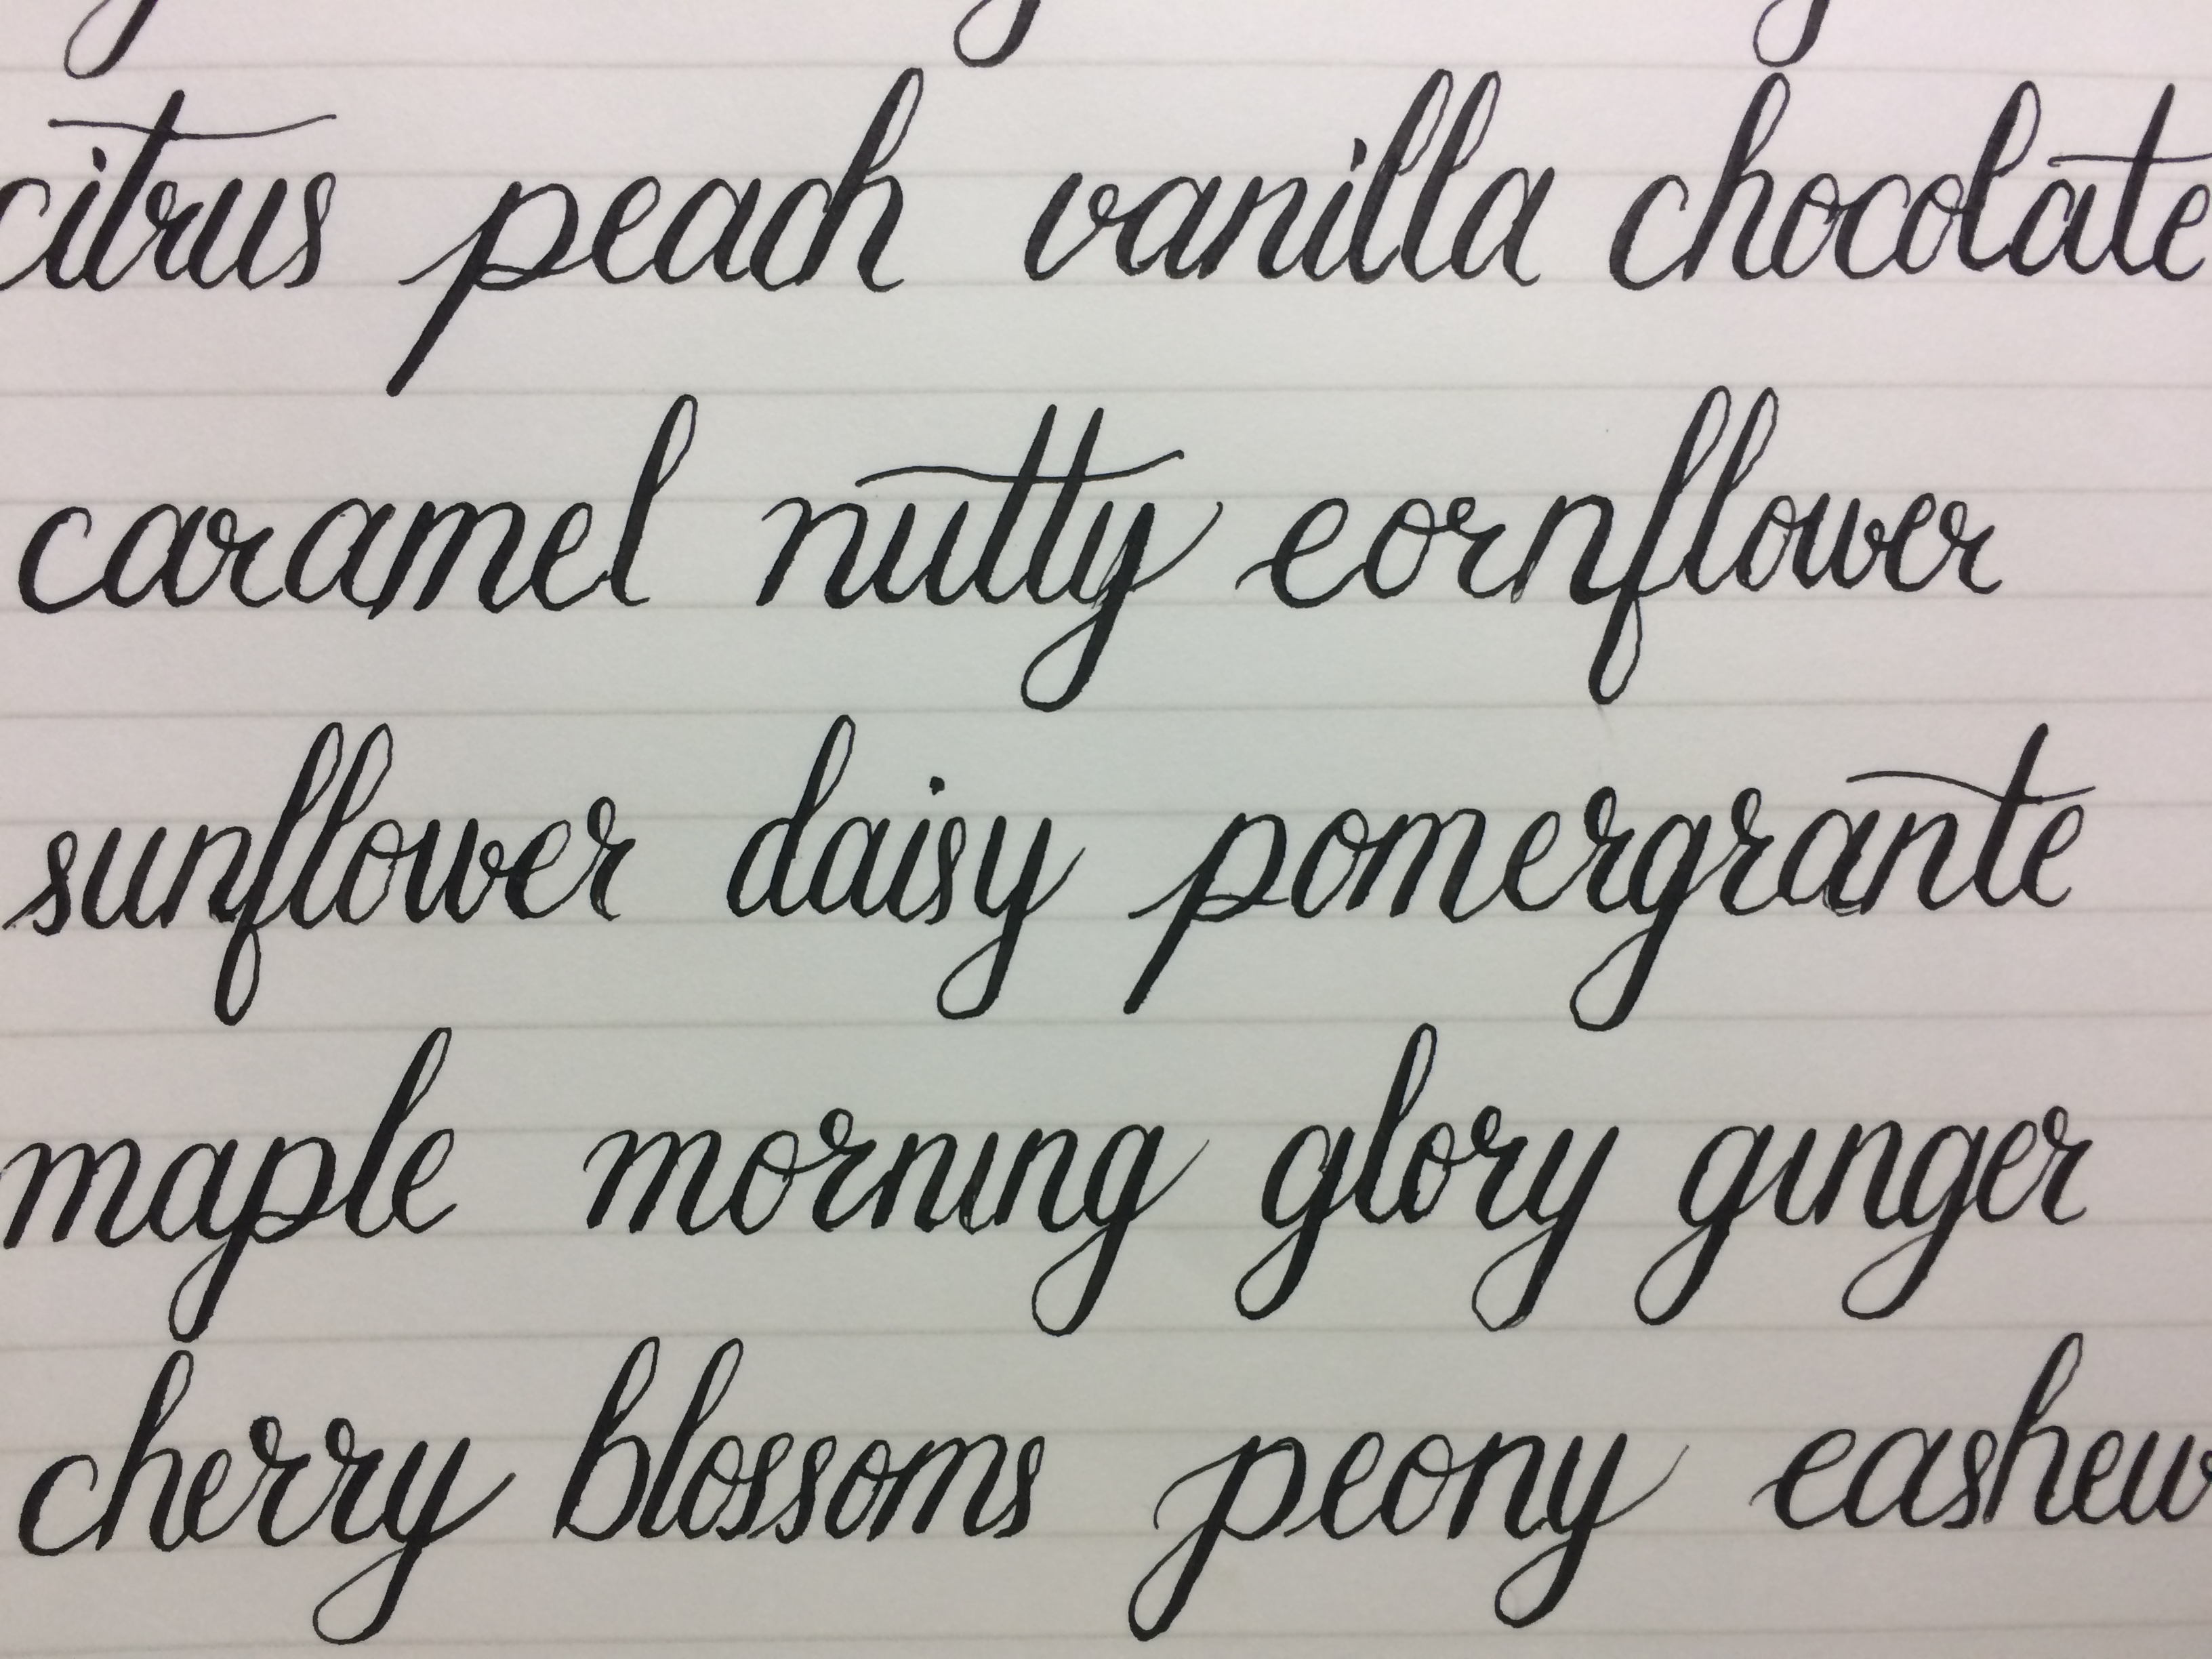 citrus peach vanilla chocolate
caramel nutty eornflower
sunflower daisy pomergrante
maple morning glory ginger
cherry blossoms peony eashew